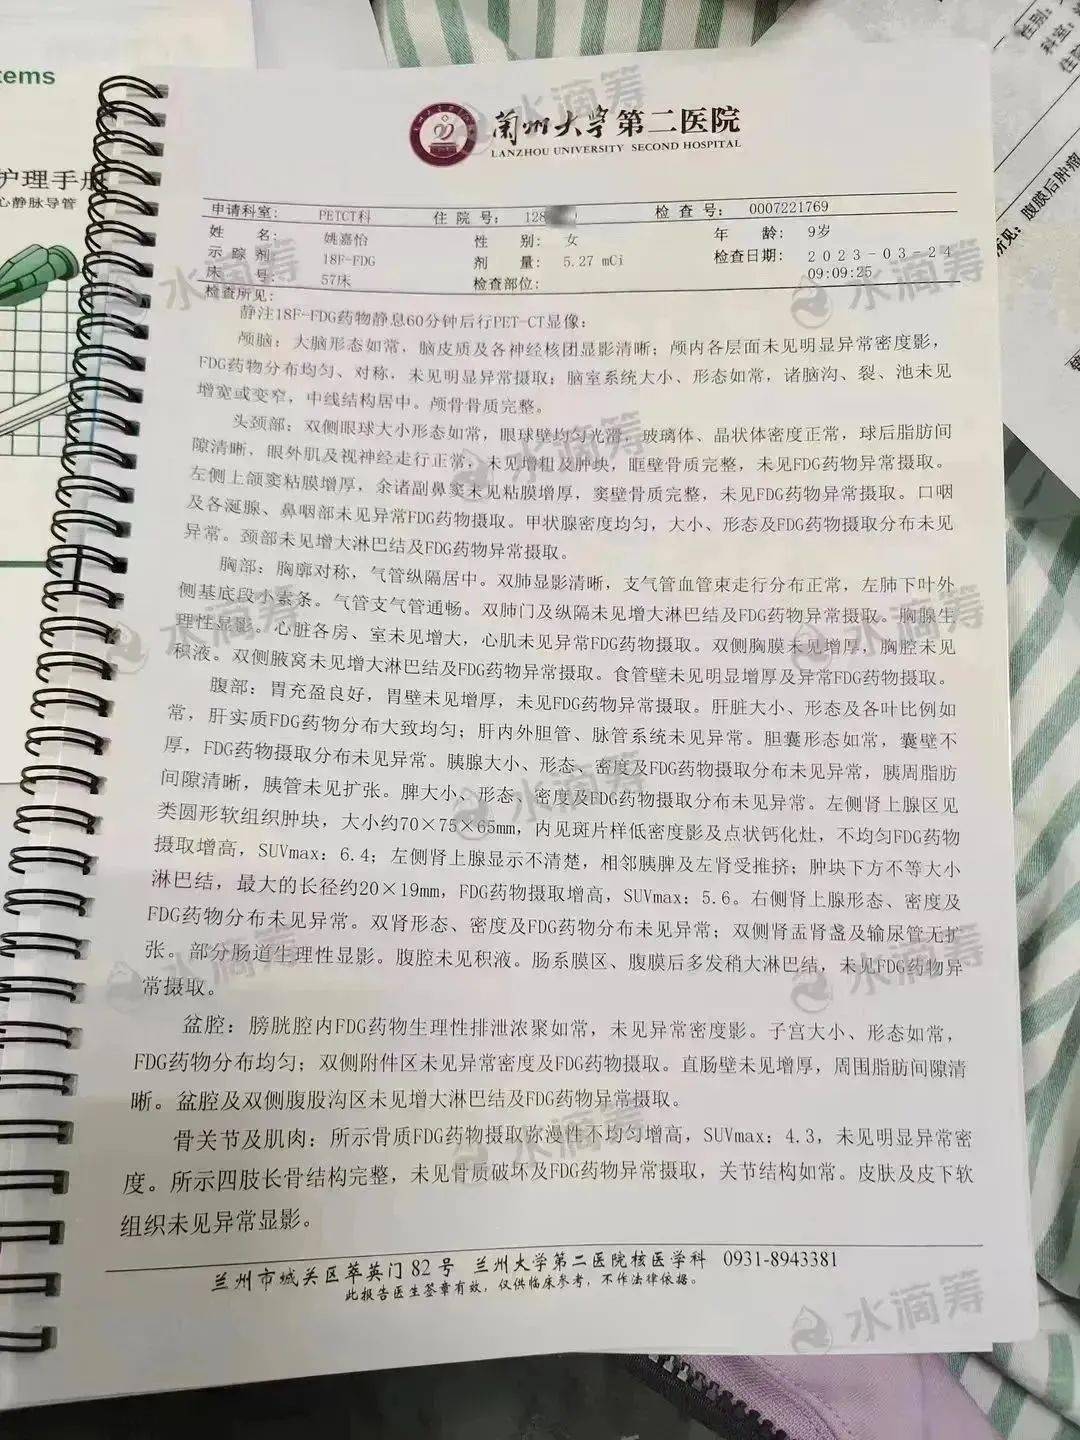 tems
护理手册
心静脉导管
性别:
科室:
住院
所见: 腹膜后肿瘤
兰州大学第二医院
LANZHOU UNIVERSITY SECOND HOSPITAL
申请科室: PETCT科 住院号: 128 检查号: 0007221769
姓名: 姚嘉怡 性别: 女 年龄: 9岁
示踪剂: 18F-FDG 剂量: 5.27 mCi 检查日期: 2023-03-24
床号: 57床 检查部位: 09:09:25
检查所见:
静注18F-FDG药物静息60分钟后行PET-CT显像:
颅脑: 大脑形态如常, 脑皮质及各神经核团显影清晰; 颅内各层面未见明显异常密度影,
FDG药物分布均匀、对称, 未见明显异常摄取; 脑室系统大小、形态如常, 诸脑沟、裂、池未见
增宽或变窄, 中线结构居中。颅骨骨质完整。
头颈部: 双侧眼球大小形态如常, 眼球壁均匀光滑, 玻璃体、晶状体密度正常, 球后脂肪间
隙清晰, 眼外肌及视神经走行正常, 未见增粗及肿块, 眶壁骨质完整, 未见FDG药物异常摄取。
左侧上颌窦粘膜增厚, 余诸副鼻窦未见粘膜增厚, 窦壁骨质完整, 未见FDG药物异常摄取。口咽
及各涎腺、鼻咽部未见异常FDG药物摄取。甲状腺密度均匀, 大小、形态及FDG药物摄取分布未见
异常。颈部未见增大淋巴结及FDG药物异常摄取。
胸部: 胸廓对称, 气管纵隔居中。双肺显影清晰, 支气管血管束走行分布正常, 左肺下叶外
侧基底段小索条。气管支气管通畅。双肺门及纵隔未见增大淋巴结及FDG药物异常摄取。胸腺生
理性显影。心脏各房、室未见增大, 心肌未见异常FDG药物摄取。双侧胸膜未见增厚, 胸腔未见
积液。双侧腋窝未见增大淋巴结及FDG药物异常摄取。食管壁未见明显增厚及异常FDG药物摄取。
腹部: 胃充盈良好, 胃壁未见增厚, 未见FDG药物异常摄取。肝脏大小、形态及各叶比例如
常, 肝实质FDG药物分布大致均匀; 肝内外胆管、脉管系统未见异常。胆囊形态如常, 囊壁不
厚, FDG药物摄取分布未见异常。胰腺大小、形态、密度及FDG药物摄取分布未见异常, 胰周脂肪
间隙清晰, 胰管未见扩张。脾大小、形态、密度及FDG药物摄取分布未见异常。左侧肾上腺区见
类圆形软组织肿块, 大小约70×75×65mm, 内见斑片样低密度影及点状钙化灶, 不均匀FDG药物
摄取增高, SUVmax: 6.4; 左侧肾上腺显示不清楚, 相邻胰脾及左肾受推挤; 肿块下方不等大小
淋巴结, 最大的长径约20×19mm, FDG药物摄取增高, SUVmax: 5.6。右侧肾上腺形态、密度及
FDG药物分布未见异常。双肾形态、密度及FDG药物分布未见异常; 双侧肾盂肾盏及输尿管无扩
张。部分肠道生理性显影。腹腔未见积液。肠系膜区、腹膜后多发稍大淋巴结, 未见FDG药物异
常摄取。
盆腔: 膀胱腔内FDG药物生理性排泄浓聚如常, 未见异常密度影。子宫大小、形态如常,
FDG药物分布均匀; 双侧附件区未见异常密度及FDG药物摄取。直肠壁未见增厚, 周围脂肪间隙清
晰。盆腔及双侧腹股沟区未见增大淋巴结及FDG药物异常摄取。
骨关节及肌肉: 所示骨质FDG药物摄取弥漫性不均匀增高, SUVmax: 4.3, 未见明显异常密
度。所示四肢长骨结构完整, 未见骨质破坏及FDG药物异常摄取, 关节结构如常。皮肤及皮下软
组织未见异常显影。
兰州市城关区萃英门82号 兰州大学第二医院核医学科 0931-8943381
此报告医生签章有效, 仅供临床参考, 不作法律依据。
水滴筹